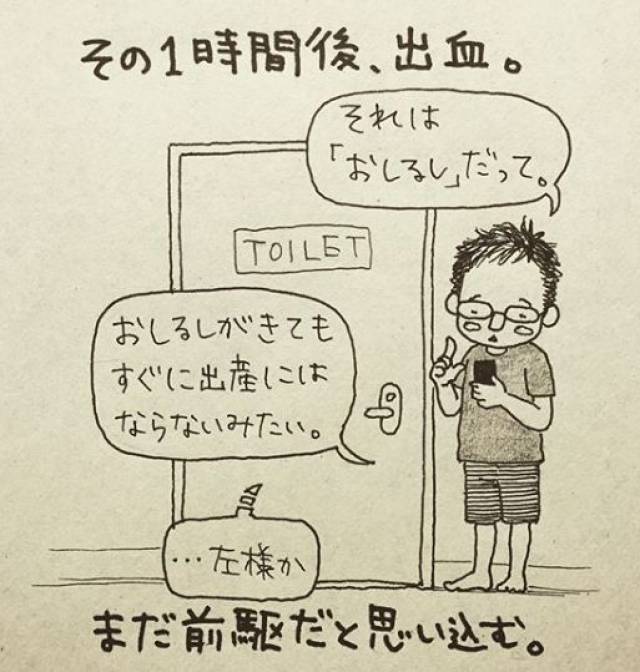 その1時間後、出血。
それは
「おしるし」だって。
TOILET
おしるしがきても
すぐに出産には
ならないみたい。
…左様か
まだ前駆だと思い込む。